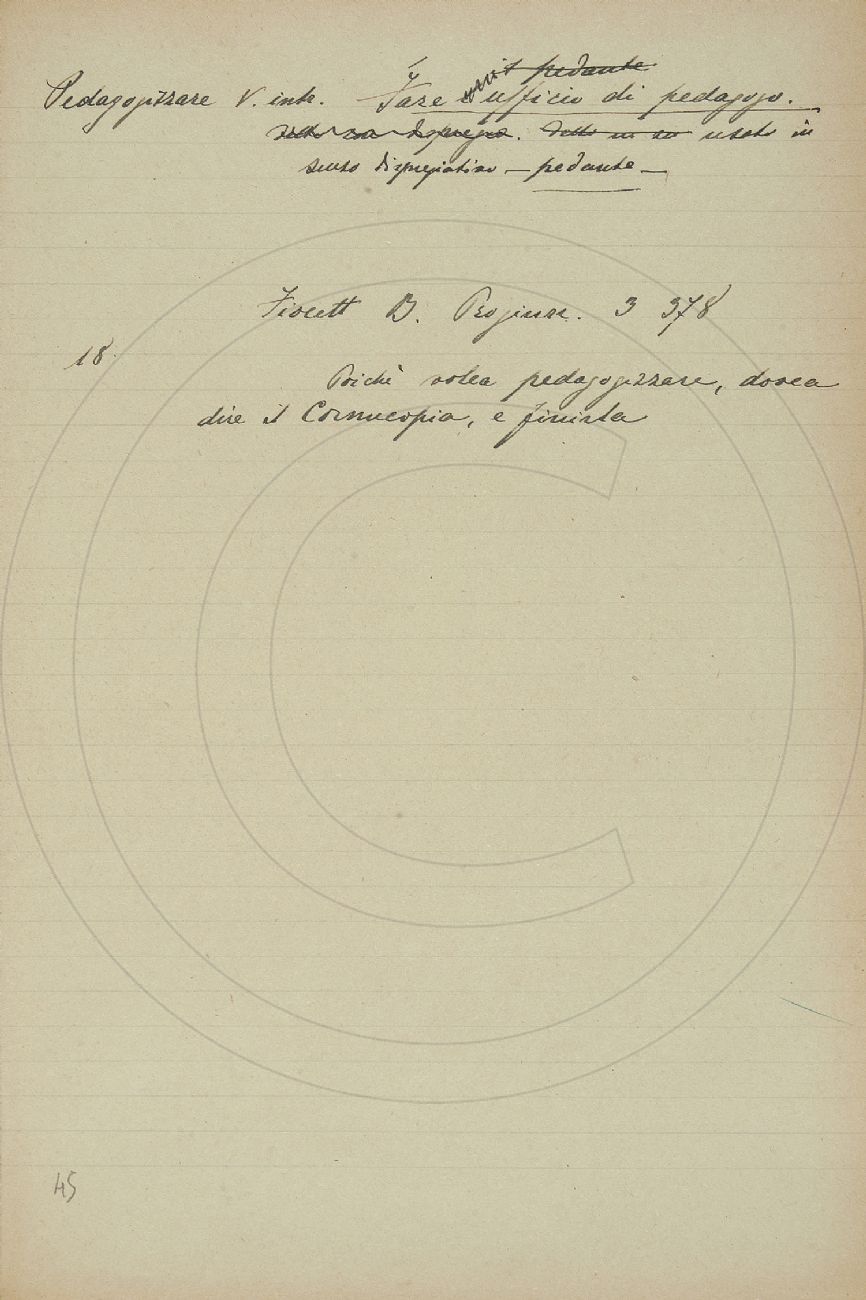 pedante
Pedagogizzare V. intr. Fare ufficio di pedagogo.
usato in
senso dispregiativo — pedante —
Fiorett B. Proginn. 3 378
18
Poichè volea pedagogizzare, dovea
dire il Cornucopia, e finirla
45